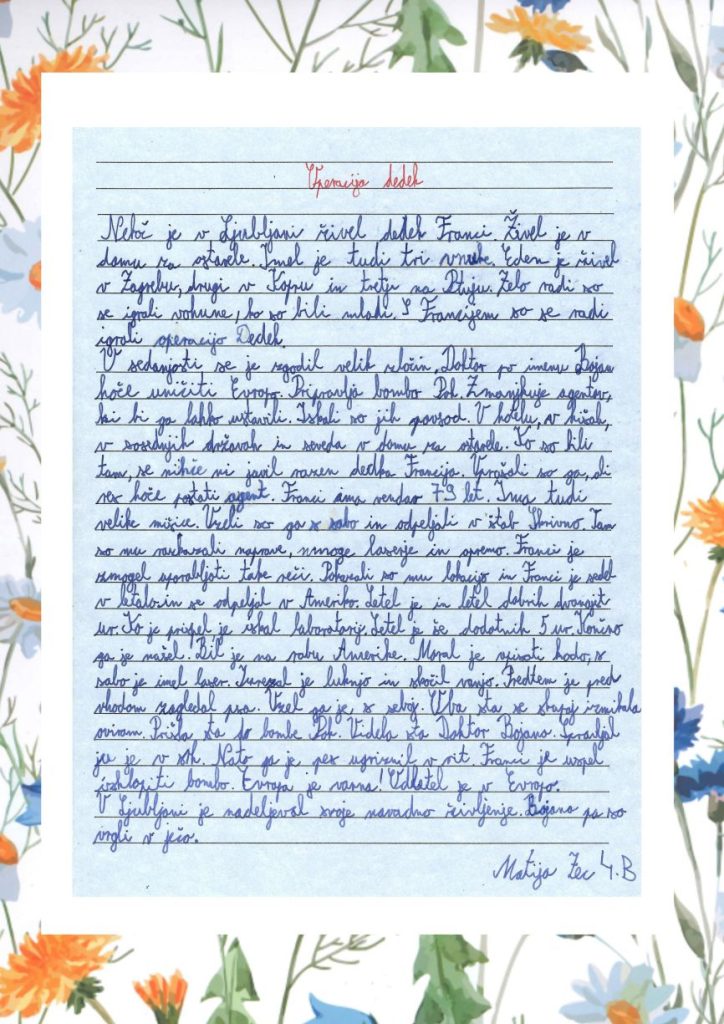 Operacija dedek
Nekoč je v Ljubljani živel dedek Franci. Živel je v
domu za ostarele. Imel je tudi tri vnuke. Eden je živel
v Zagrebu, drugi v Kopru in tretji na Ptuju. Zelo radi so
se igrali vohune, ko so bili mladi. S Francijem so se radi
igrali operacijo Dedek.
V sedanjosti se je zgodil velik zločin. Doktor po imenu Bojan
hoče uničiti Evropo. Pripravlja bombo Pok. Zmanjkuje agentov,
ki bi ga lahko ustavili. Iskali so jih povsod. V hotelu, v hišah,
v sosednjih državah in seveda v domu za ostarele. Ko so bili
tam, se nihče ni javil razen dedka Francija. Vprašali so ga, ali
res hoče postati agent. Franci ima vendar 79 let. Ima tudi
velike mišice. Vzeli so ga s sabo in odpeljali v štab Skrivno. Tam
so mu razkazali naprave, mnoge laserje in opremo. Franci je
zmogel uporabljati take reči. Pokazali so mu lokacijo in Franci je sedel
v letalo in se odpeljal v Ameriko. Letel je in letel dobrih dvanajst
ur. Ko je prispel, je iskal laboratorij. Letel je še dodatnih 5 ur. Končno
ga je našel. Bil je na robu Amerike. Moral je vpisati kodo, s
sabo je imel laser. Izrezal je luknjo in skočil vanjo. Predtem je pred
vhodom zagledal psa. Vzel ga je s seboj. Oba sta se skupaj izmikala
oviram. Prišla sta do bombe Pok. Videla sta Doktor Bojana. Spravljal
ju je v strh. Nato ga je pes ugriznil v rit. Franci je uspel
izklopiti bombo. Evropa je varna! Odletel je v Evropo.
V Ljubljani je nadeljeval svoje navadno življenje. Bojana pa so
vrgli v ječo.
Matija Zec 4.B